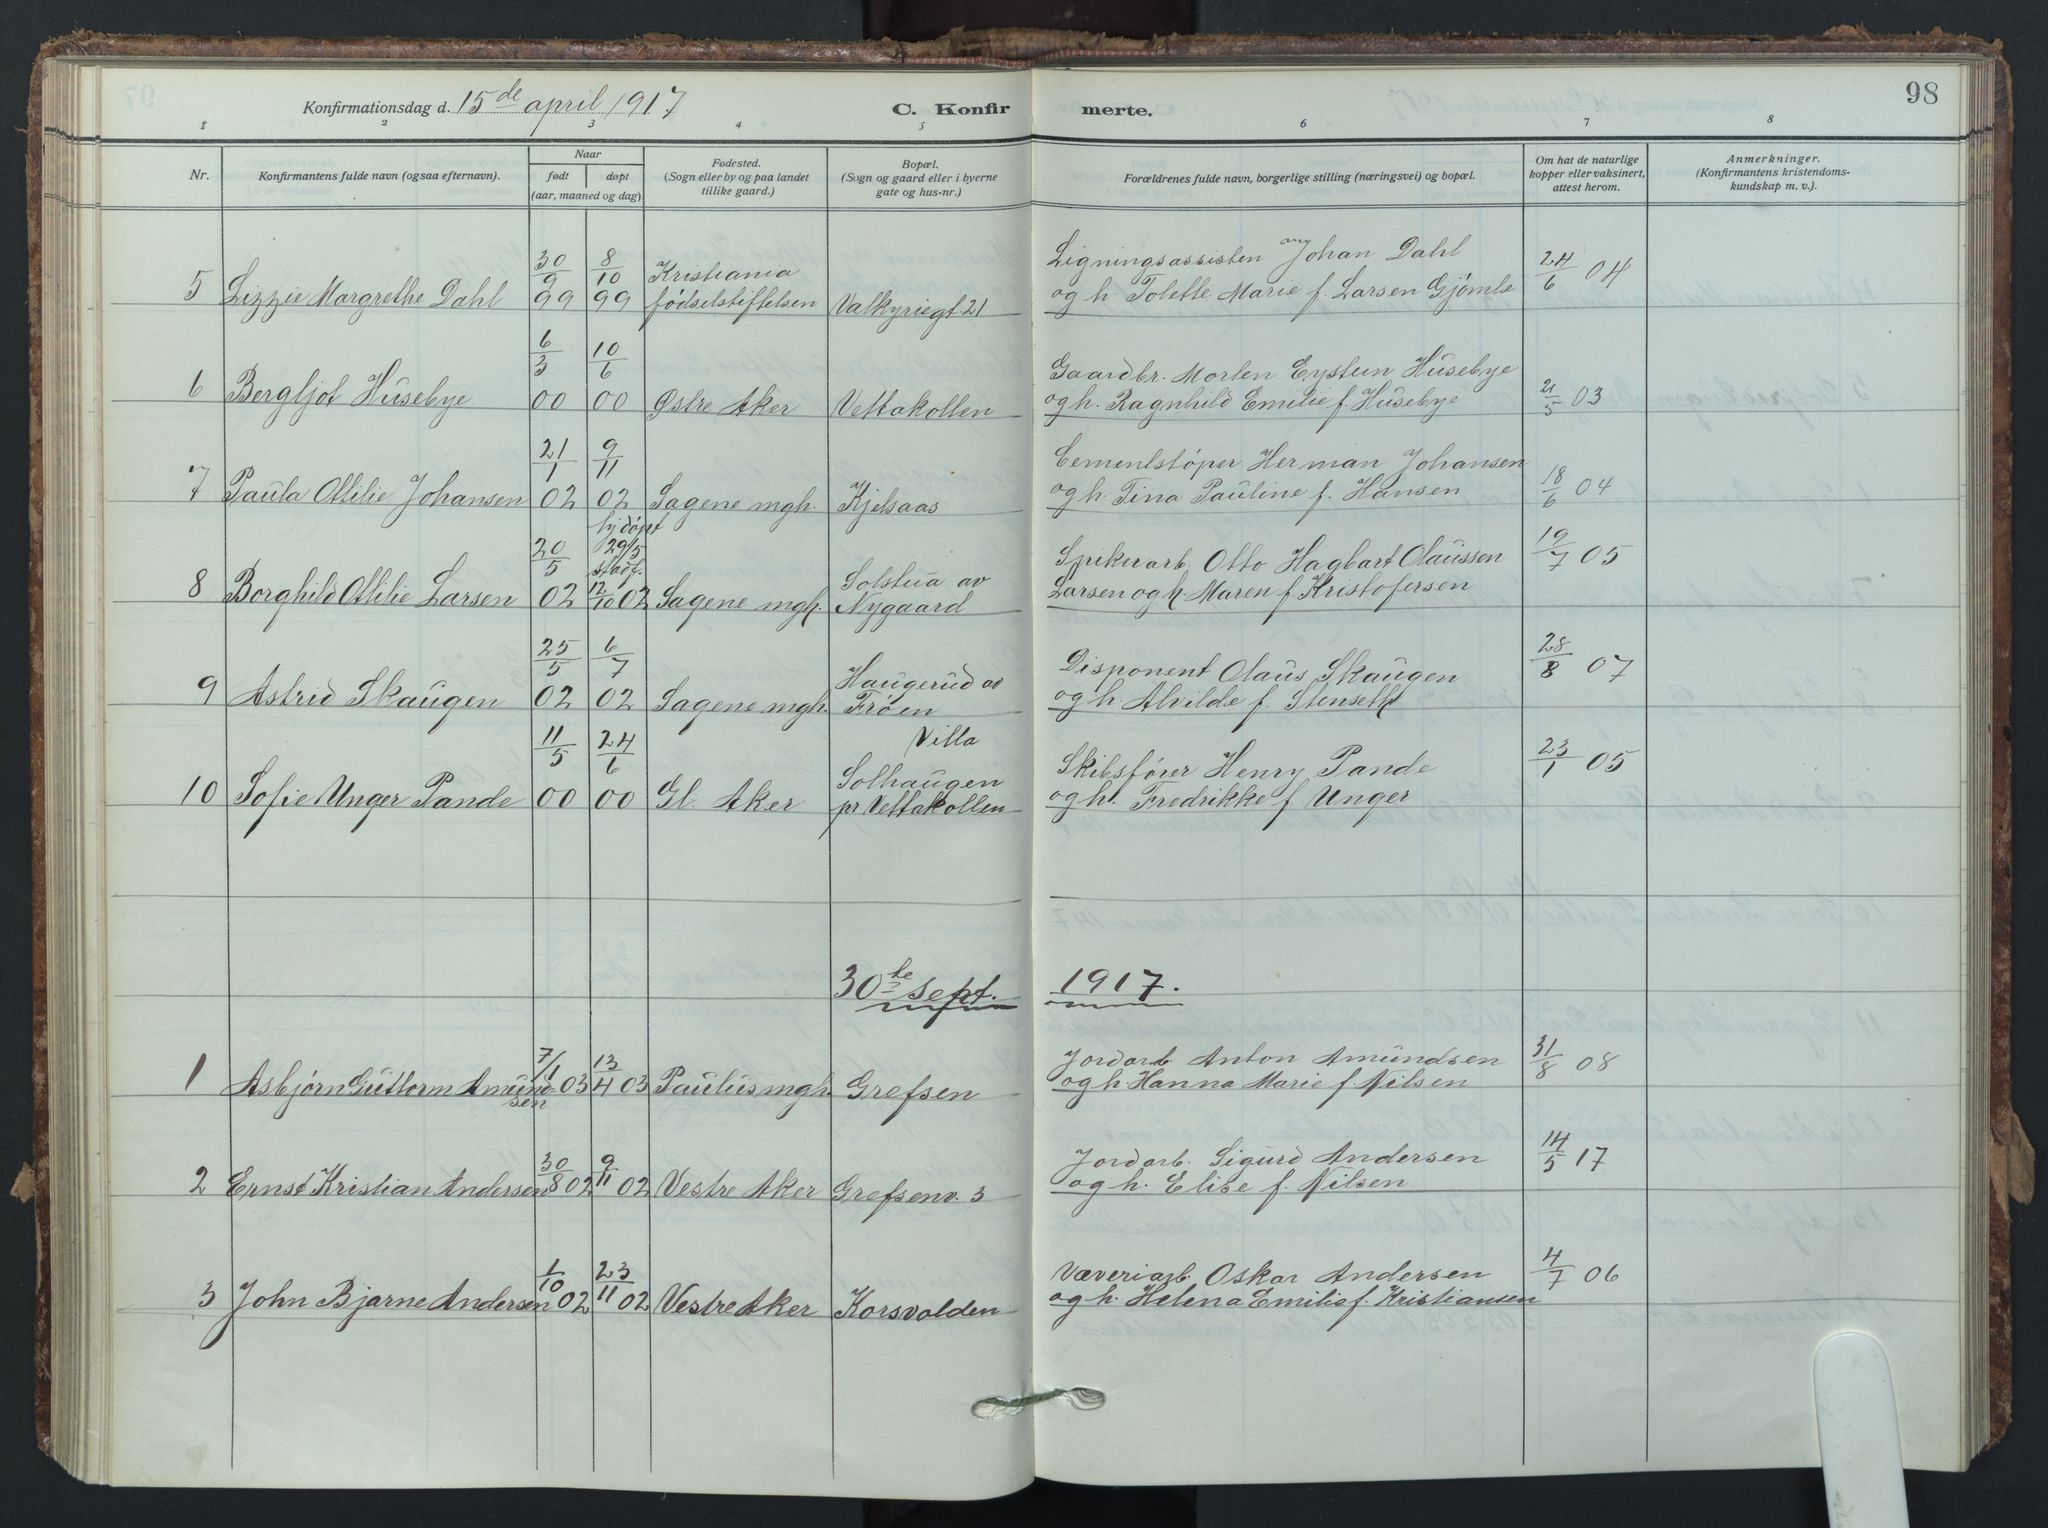 98
Konfirmationsdag d. 15de april 1917
C. Konfir merte.
1 2 3 4 5 6 7 8
Nr.
Konfirmantens fulde navn (ogsaa efternavn).
Naar
født døpt
(aar, maaned og dag)
Fødested.
(Sogn eller by og paa landet
tillike gaard.)
Bopæl.
(Sogn og gaard eller i byerne
gate og hus-nr.)
Forældrenes fulde navn, borgerlige stilling (næringsvei) og bopæl.
Om hat de naturlige
kopper eller vaksinert,
attest herom.
Anmerkninger.
(Konfirmantens kristendoms-
kundskap m. v.).
5 Lizzie Margrethe Dahl 30/9 99 8/10 99 Kristiania
fødselstiftelsen Valkyriegt 21
Ligningsassisten Johan Dahl
og h. Tolette Marie f. Larsen Gjømle 24/6 04
6 Bergljot Husebye 6/3 00 10/6 00 Østre Aker Vettakollen
Gaardbr. Morten Eystein Husebye
og h. Ragnhild Emilie f. Husebye 21/5 03
7 Paula Ottilie Johansen 21/1 02 9/11 02 Sagene mgh. Kjelsaas
Cementstøper Herman Johansen
og h. Tina Pauline f. Hansen 18/6 04
8 Borghild Ottilie Larsen 20/5 02 hjdøpt
29/5
stadf.
12/10 02 Sagene mgh. Solstua av
Nygaard
Spikerarb. Otto Hagbart Claussen
Larsen og h. Maren f. Kristofersen 19/7 05
9 Astrid Skaugen 25/5 02 6/7 02 Sagene mgh. Haugerud av
Frøen
Disponent Olaus Skaugen
og h. Alvilde f. Stenseth 28/8 07
10 Sofie Unger Pande 11/5 00 24/6 00 Gl. Aker Villa
Solhaugen
pr Vettakollen
Skibsfører Henry Pande
og h. Fredrikke f. Unger 23/1 05
30te sept. 1917.
1 Asbjørn Guttorm Amund-
sen 7/1 03 13/4 03 Paulus mgh. Grefsen
Jordarb. Anton Amundsen
og h. Hanna Marie f. Nilsen 31/8 08
2 Ernst Kristian Andersen 30/8 02 9/11 02 Vestre Aker Grefsenv. 3
Jordarb. Sigurd Andersen
og h. Elise f. Nilsen 14/5 17
3 John Bjarne Andersen 1/10 02 23/11 02 Vestre Aker Korsvolden
Væveriarb. Oskar Andersen
og h. Helena Emilie f. Kristiansen 4/7 06